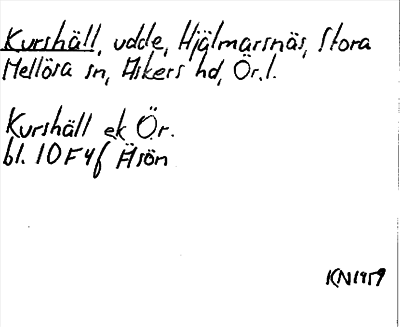 Kurshäll, udde, Hjälmarsnäs, Stora
Mellösa sn, Askers hd, Ör.l.
Kurshäll ek Ör.
bl. 10F4f Äsön
KN1959